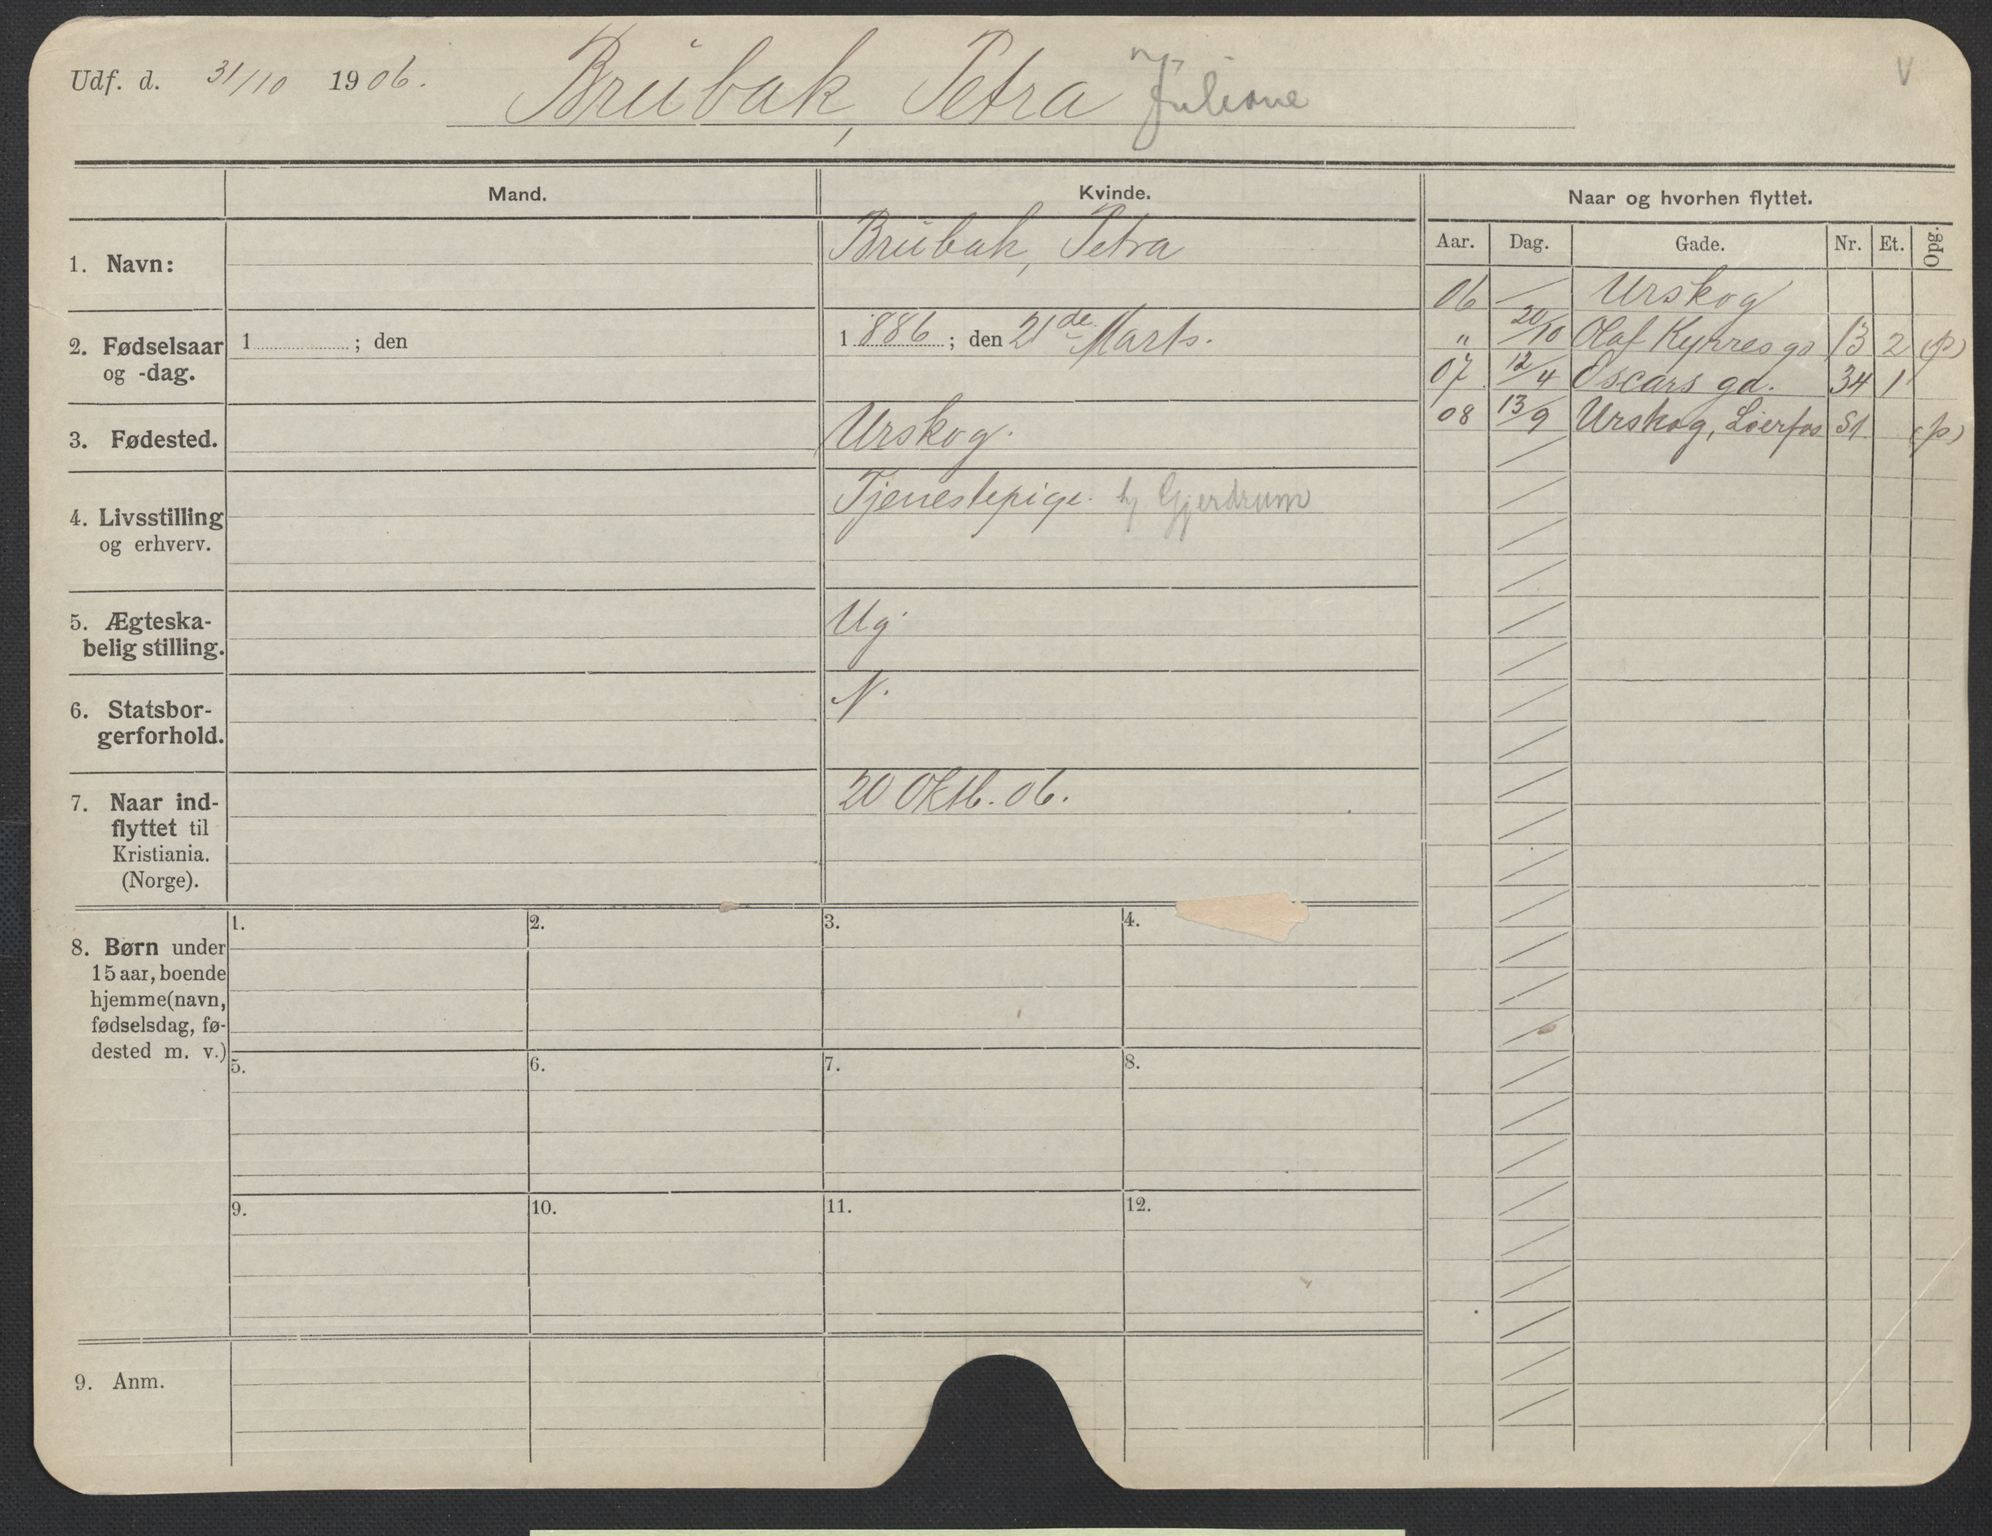 Udf. d. 31/10 1906. Brübak, Petra Juliane
V
Mand. Kvinde. Naar og hvorhen flyttet.
Aar. Dag. Gade. Nr. Et. Opg.
1. Navn: Brübak, Petra
06 Urskog
2. Fødselsaar og -dag. 1 ; den 1886 ; den 21de Marts.
" 20/10 Olaf Kyrres gd 13 2 (p)
07 12/4 Oscars gd. 34 1
08 13/9 Urskog, Lierfos St. (p)
3. Fødested. Urskog.
4. Livsstilling
og erhverv. Tjenestepige. hj Gjerdrum
5. Ægteska-
belig stilling. Ug.
6. Statsbor-
gerforhold. N.
7. Naar ind-
flyttet til
Kristiania.
(Norge). 20 Oktb. 06.
8. Børn under
15 aar, boende
hjemme (navn,
fødselsdag, fø-
dested m. v.)
1. 2. 3. 4.
5. 6. 7. 8.
9. 10. 11. 12.
9. Anm.